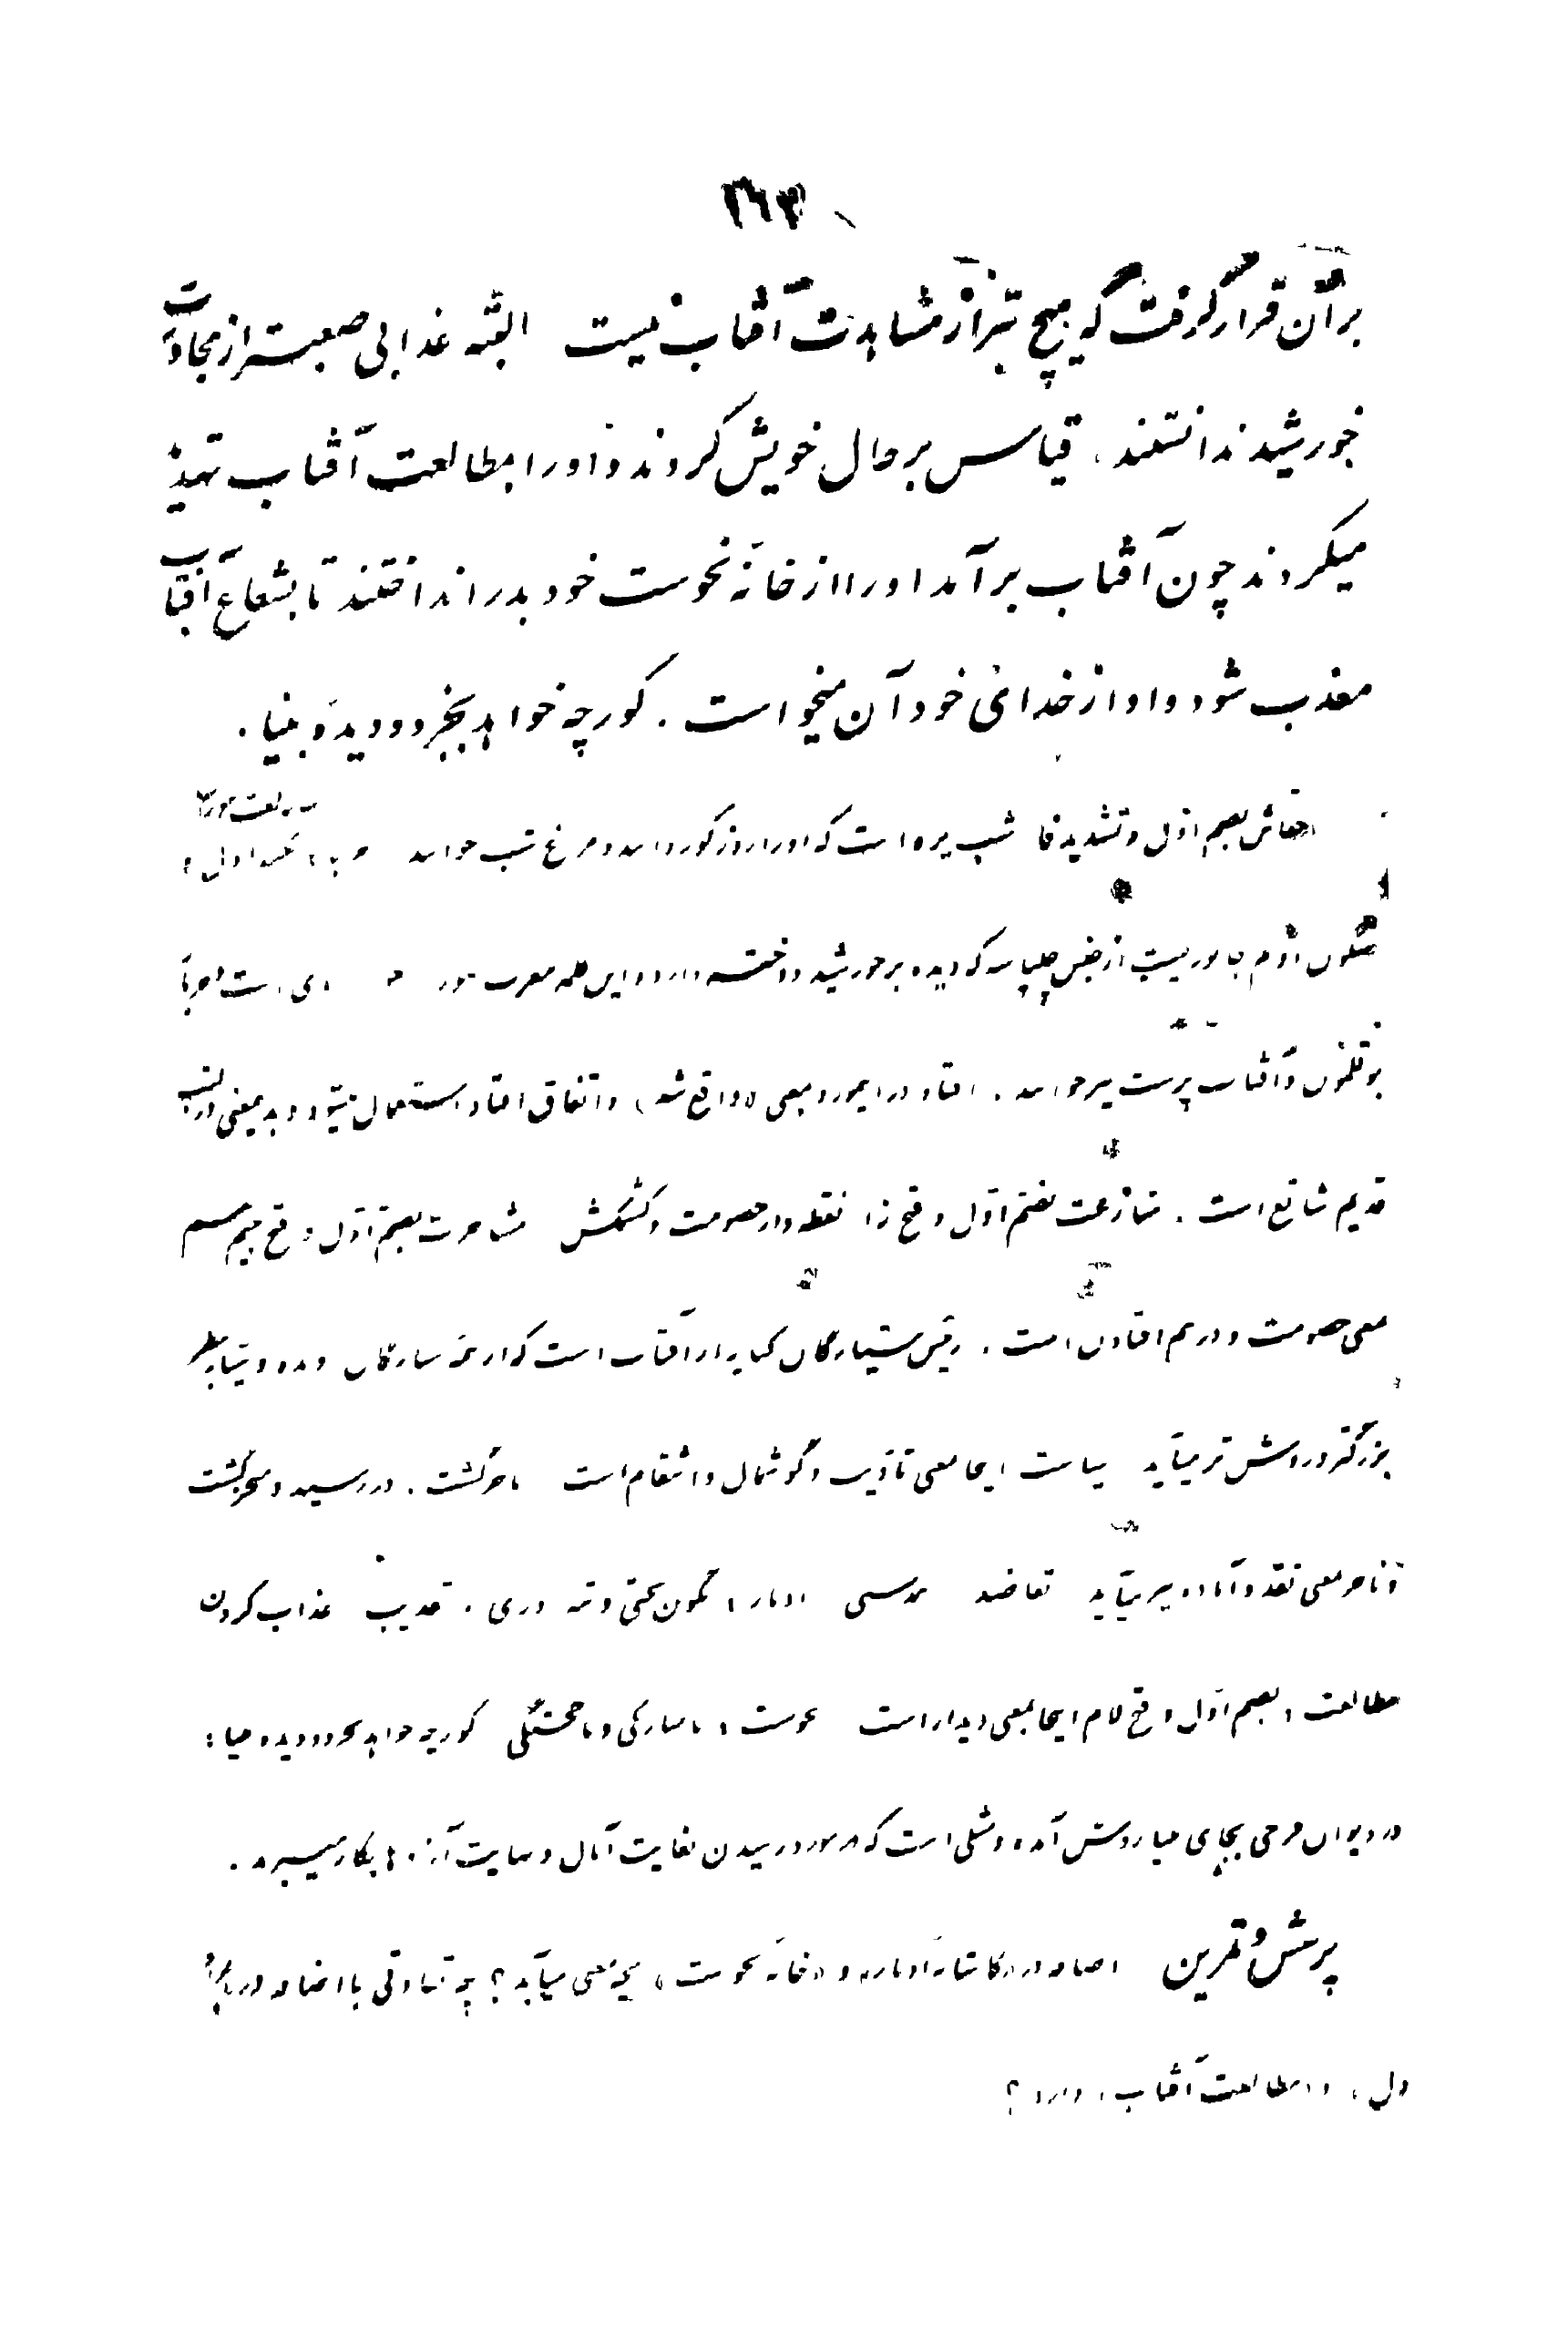 ۲۶۳
بر آن قرار گرفت که هیچ بتر از مشاهدت آفتاب نیست البته عذابی صعبتر از مجاورت
خورشید ندانستند. قیاس بر حال خویش کردند و او را بمطالعت آفتاب تهدید
میکردند چون آفتاب برآمد او را از خانهٔ نحوست خود بدر انداختند تا بشعاع آفتاب
معذب شود و او از خدای خود آن میخواست. کور چه خواهد بجز دو دیدهٔ بینا.
خفاش بضم اول و تشدید فا شب پره است که او را روز کور دانند و مرغ شب خوانند حربا بکسر اول و
سکون دوم جانوریست از جنس چلپاسه که دیده بر خورشید دوخته دارد و این کلمه معرب خور است حربا را
بوقلمون و آفتاب پرست نیز خوانند. افتاد در اینمورد بمعنی «واقع شد» و اتفاق افتاد استعمال میشود و بدین معنی در کتب
قدیم شایع است. منازعت بضم اول و فتح زا نقطه دار خصومت و کشمکش مشاجرت بضم اول و فتح جیم هم
بمعنی خصومت و درهم افتادن است. رئیس ستیارگان کنایه از آفتاب است که از همهٔ ستارگان بنظر
بزرگتر و روشن تر میآید سیاست اینجا بمعنی تأدیب و گوشمال و انتقام است تاخر گشت. در رسید و گشت
و ناجز بمعنی نقد و آماده نیز میآید تعاضد ادبار نگون بختی و تعذیب عذاب کردن
مطالعت بضم اول و فتح لام اینجا بمعنی دیدار است نحوست نامبارکی و ناخجستگی کور چه خواهد بجز دو دیده بینا:
در دیوان فرخی بجای بینا روشن آمده و مثلی است که در مورد رسیدن بغایت آمال و نهایت آرزوها بکار میبرند.
پرسش و تمرین اضافه در «کاشانهٔ ادبار» و «خانهٔ نحوست» بچه معنی میآید؟ چه تفاوتی با اضافه در
دل» و «مطالعت آفتاب» دارد؟